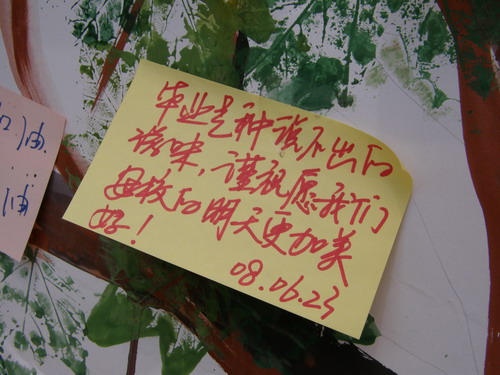 加油.
...
油
毕业是种说不出的
滋味，谨祝愿我们
母校的明天更加美
好！
08.06.23